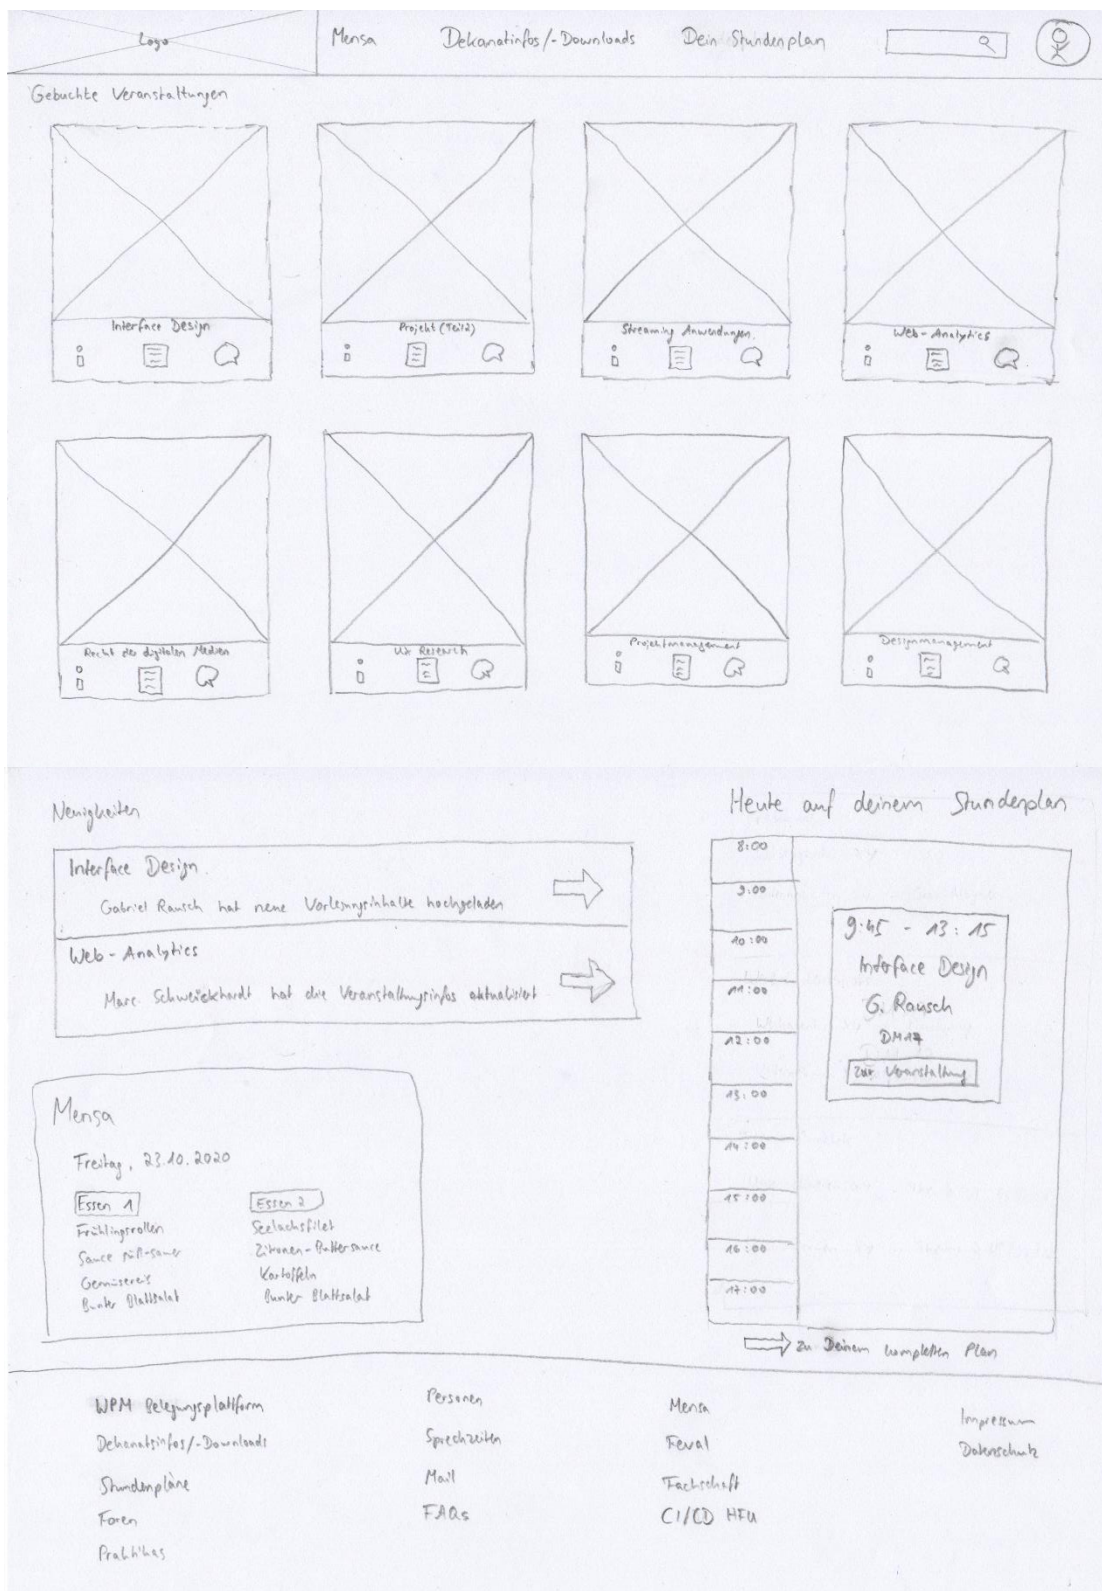 Logo
Mensa
Dekanatinfos/-Downloads
Dein Stundenplan
Gebuchte Veranstaltungen
Interface Design
Projekt (Teil 2)
Streaming Anwendungen
Web-Analytics
Recht der digitalen Medien
UX Research
Projektmanagement
Designmanagement
Neuigkeiten
Interface Design
Gabriel Rausch hat neue Vorlesungsinhalte hochgeladen
Web-Analytics
Marc Schweickhardt hat die Veranstaltungsinfos aktualisiert
Mensa
Freitag, 23.10.2020
Essen 1
Frühlingsrollen
Sauce süß-sauer
Gemüsereis
Bunter Blattsalat
Essen 2
Seelachsfilet
Zitronen-Buttersauce
Kartoffeln
Bunter Blattsalat
Heute auf deinem Stundenplan
8:00
9:00
10:00
11:00
12:00
13:00
14:00
15:00
16:00
17:00
9:45 - 13:15
Interface Design
G. Rausch
zur Veranstaltung
zu Deinem kompletten Plan
WPM Belegungsplattform
Dekanatsinfos/-Downloads
Stundenpläne
Foren
Praktikas
Personen
Sprechzeiten
Mail
FAQs
Mensa
Feval
Fachschaft
CI/CD HFU
Impressum
Datenschutz